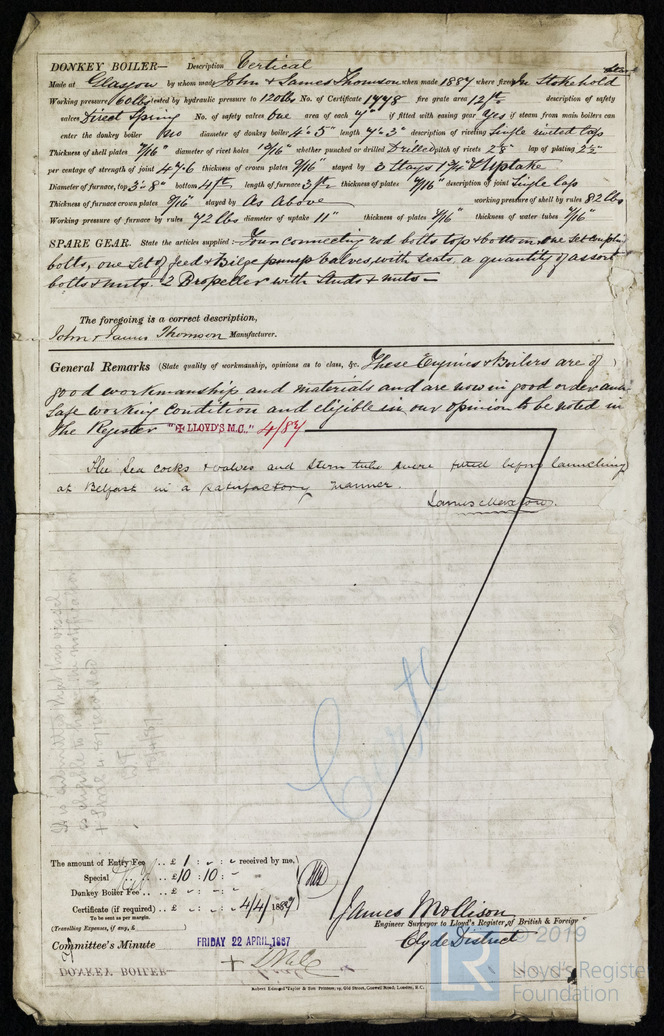 DONKEY BOILER— Description Vertical
Made at Glasgow by whom made John & James Thomson when made 1887 where fixed In Stokehold
Working pressure 60lbs tested by hydraulic pressure to 120lbs No. of Certificate 1778 fire grate area 12ft description of safety
valves Direct Spring No. of safety valves One area of each 7" if fitted with easing gear Yes if steam from main boilers can
enter the donkey boiler No diameter of donkey boiler 4'-5" length 7'-3" description of riveting Single riveted lap
Thickness of shell plates 7/16" diameter of rivet holes 13/16" whether punched or drilled Drilled pitch of rivets lap of plating
per centage of strength of joint 47.6 thickness of crown plates 9/16" stayed by 3 Stays 1¾" & Uptake
Diameter of furnace, top 3'-8" bottom 4ft length of furnace 3ft thickness of plates description of joint Single lap
Thickness of furnace crown plates 9/16" stayed by As Above working pressure of shell by rules 82 lbs
Working pressure of furnace by rules 72 lbs diameter of uptake 11" thickness of plates thickness of water tubes
SPARE GEAR. State the articles supplied:— Four connecting rod bolts top & bottom, one set coupling
bolts, one set of feed & Bilge pump valves with seats, a quantity of assort
bolts & nuts. & Propeller with Studs & nuts —
The foregoing is a correct description,
John & James Thomson Manufacturer.
General Remarks (State quality of workmanship, opinions as to class, &c. These Engines & Boilers are of
good workmanship and materials and are now in good order and
safe working condition and eligible in our opinion to be noted in
the Register "✠ LLOYD'S M.C." 4/87
The Sea cocks & valves and Stern tube were fitted before launching
at Belfast in a satisfactory manner.
James
It is submitted that this vessel
is eligible to have the notification
Certf
The amount of Entry Fee .. £ 1 : - : - received by me,
Special .. £ 10 : 10 : -
Donkey Boiler Fee .. £
Certificate (if required) .. £ - : - : - 4/4/1887
To be sent as per margin.
(Travelling Expenses, if any, £ )
James Mollison
Engineer Surveyor to Lloyd's Register of British & Foreign
Clyde District
Committee's Minute FRIDAY 22 APRIL 1887
+ LMC
DONKEY BOILER—
Robert Edmund Taylor & Son Printers, 19, Old Street, Goswell Road, London, E.C.
© 2019
LR
Lloyd's Register
Foundation